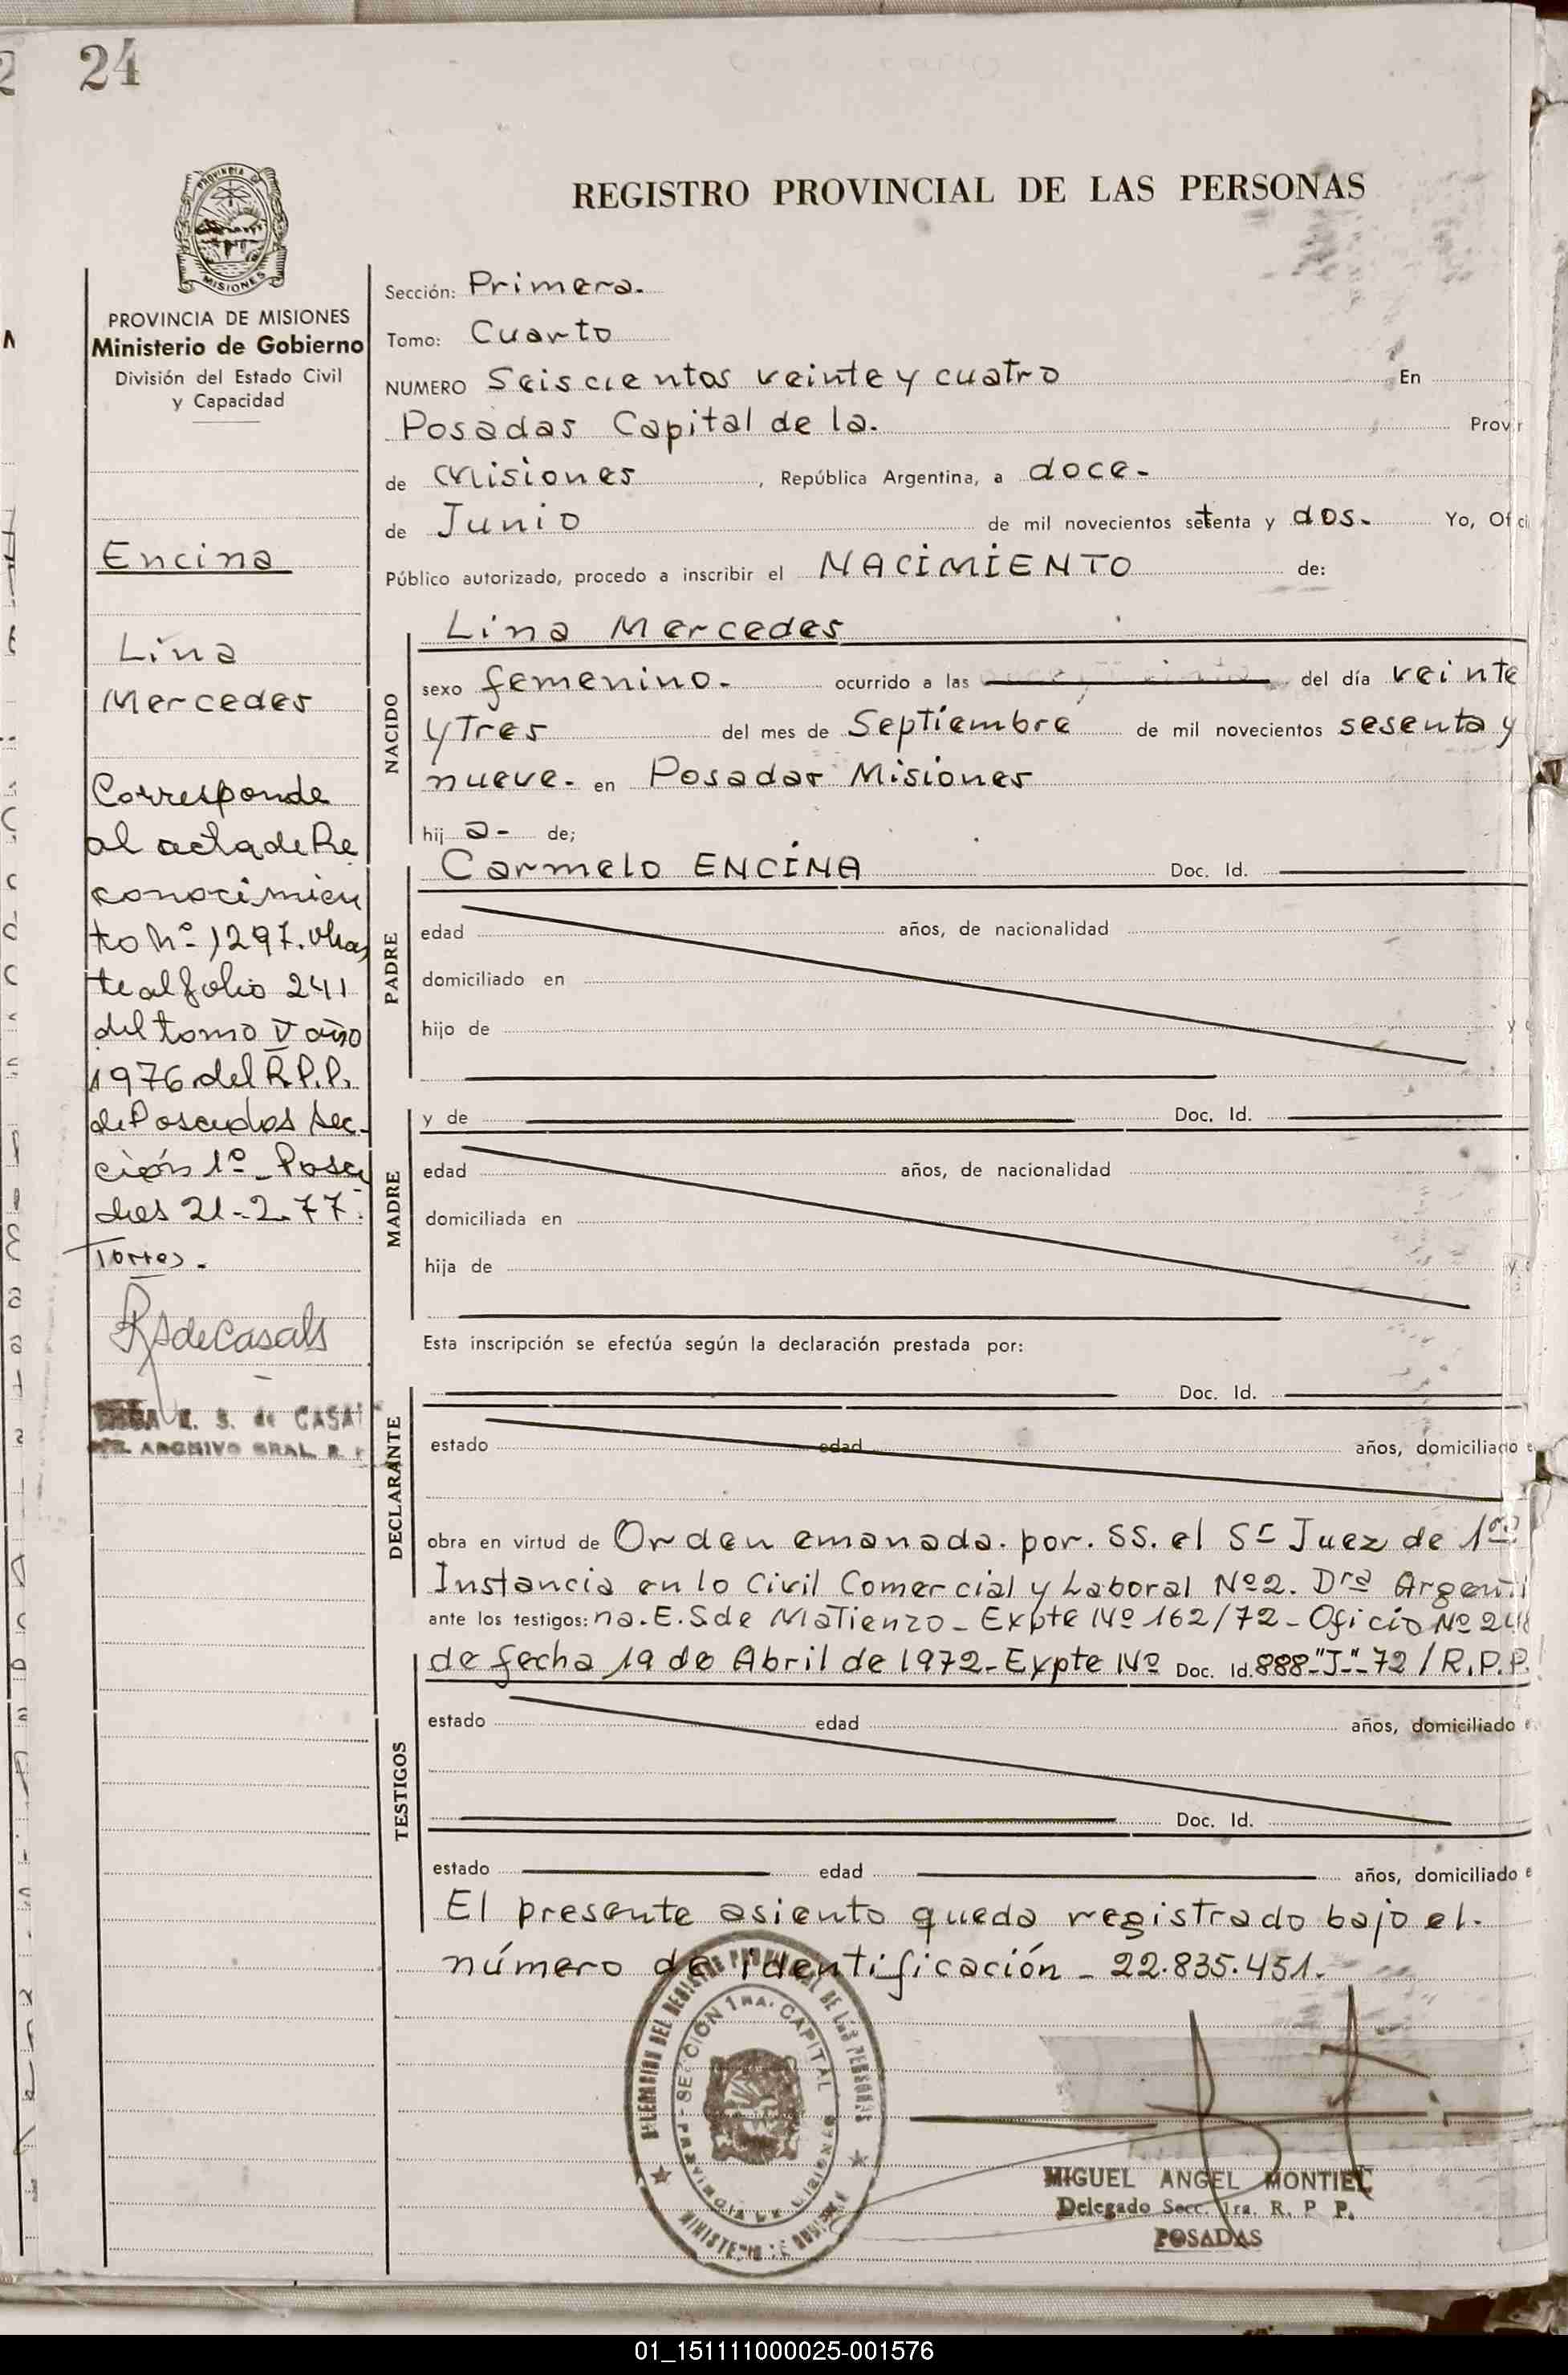 24
PROVINCIA DE
MISIONES
REGISTRO PROVINCIAL DE LAS PERSONAS
PROVINCIA DE MISIONES
Ministerio de Gobierno
División del Estado Civil
y Capacidad
Encina
Lina
Mercedes
Corresponde
al acta de Re
conocimien
to Nº 1297. obran
te al folio 241
del tomo V año
1976 del R.P.P.
de Posadas Sec-
ción 1º - Posa
das 21-2-77.
Torres.
RSdeCasals
E. S. de CASAL
ARCHIVO GRAL. R. P
Sección: Primera.
Tomo: Cuarto
NUMERO Seiscientos veinte y cuatro En
Posadas Capital de la. Provin
de Misiones, República Argentina, a doce-
de Junio de mil novecientos setenta y dos. Yo, Ofici
Público autorizado, procedo a inscribir el NACIMIENTO de:
NACIDO
Lina Mercedes
sexo femenino. ocurrido a las del día veinte
y Tres del mes de Septiembre de mil novecientos sesenta y
nueve. en Posadas Misiones
hij a- de;
PADRE
Carmelo ENCINA Doc. Id.
edad años, de nacionalidad
domiciliado en
hijo de y
MADRE
y de Doc. Id.
edad años, de nacionalidad
domiciliada en
hija de y
Esta inscripción se efectúa según la declaración prestada por:
DECLARANTE
Doc. Id.
estado edad años, domiciliado e
obra en virtud de Orden emanada. por. SS. el Sr Juez de 1ra
Instancia en lo Civil Comercial y Laboral Nº2. Dra Argenti
ante los testigos: na. E. S de Matienzo - Expte Nº 162/72 - Oficio Nº 248
de fecha 19 de Abril de 1972 - Expte Nº Doc. Id. 888-"J"-72 / R.P.P.
TESTIGOS
estado edad años, domiciliado e
Doc. Id.
estado edad años, domiciliado e
El presente asiento queda registrado bajo el.
número de identificación - 22.835.451.
DEL REGISTRO PROVINCIAL DE LAS PERSONAS
SECCIÓN 1RA. CAPITAL
PROVINCIA DE MISIONES
MINISTERIO DE GOBIERNO
MIGUEL ANGEL MONTIEL
Delegado Secc. 1ra. R. P P.
POSADAS
01_151111000025-001576